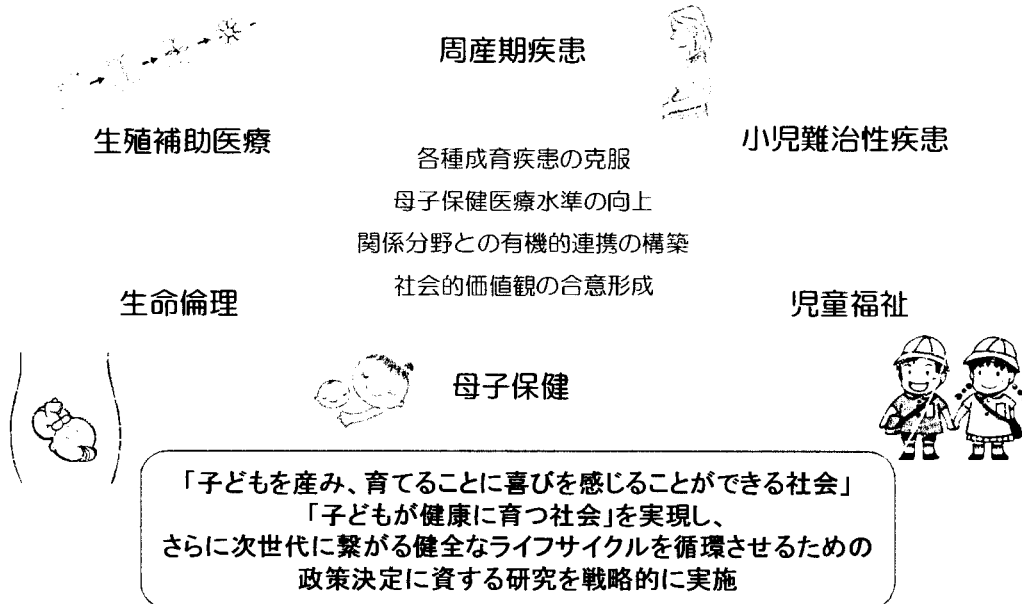 周産期疾患
生殖補助医療
小児難治性疾患
各種成育疾患の克服
母子保健医療水準の向上
関係分野との有機的連携の構築
社会的価値観の合意形成
生命倫理
児童福祉
母子保健
「子どもを産み、育てることに喜びを感じることができる社会」
「子どもが健康に育つ社会」を実現し、
さらに次世代に繋がる健全なライフサイクルを循環させるための
政策決定に資する研究を戦略的に実施